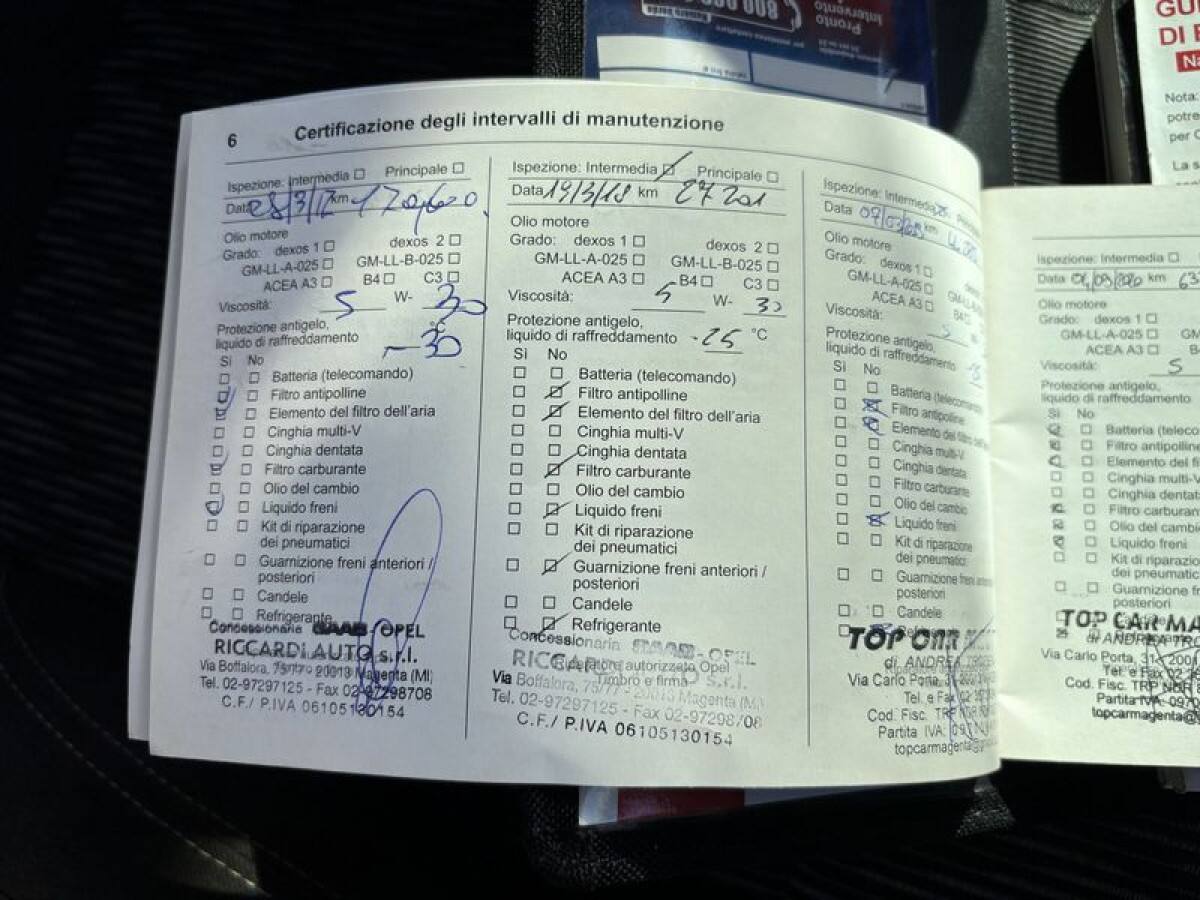 800
Pronto
Intervento
GU
DI
Na
Nota:
potre
per C
La s
6 Certificazione degli intervalli di manutenzione
Ispezione: Intermedia ☐ Principale ☐
Data km 170,600
Olio motore
Grado: dexos 1 ☐ dexos 2 ☐
GM-LL-A-025 ☐ GM-LL-B-025 ☐
ACEA A3 ☐ B4 ☐ C3 ☐
Viscosità: 5 W- 30
Protezione antigelo,
liquido di raffreddamento -30 °C
Sì No
Batteria (telecomando)
Filtro antipolline
Elemento del filtro dell'aria
Cinghia multi-V
Cinghia dentata
Filtro carburante
Olio del cambio
Liquido freni
Kit di riparazione
dei pneumatici
Guarnizione freni anteriori /
posteriori
Candele
Refrigerante
Concessionaria SAAB - OPEL
RICCARDI AUTO s.r.l.
Via Boffalora, 75/77 - 20013 Magenta (MI)
Tel. 02-97297125 - Fax 02-97298708
C.F./ P.IVA 06105130154
Ispezione: Intermedia ☐ Principale ☐
Data 19/3/18 km 27201
Olio motore
Grado: dexos 1 ☐ dexos 2 ☐
GM-LL-A-025 ☐ GM-LL-B-025 ☐
ACEA A3 ☐ B4 ☐ C3 ☐
Viscosità: 5 W- 30
Protezione antigelo,
liquido di raffreddamento -25 °C
Sì No
Batteria (telecomando)
Filtro antipolline
Elemento del filtro dell'aria
Cinghia multi-V
Cinghia dentata
Filtro carburante
Olio del cambio
Liquido freni
Kit di riparazione
dei pneumatici
Guarnizione freni anteriori /
posteriori
Candele
Refrigerante
Concessionaria SAAB - OPEL
RICCARDI s.r.l.
Operatore autorizzato Opel
Timbro e firma
Via Boffalora, 75/77 - 20013 Magenta (MI)
Tel. 02-97297125 - Fax 02-97298708
C.F./ P.IVA 06105130154
Ispezione: Intermedia
Data km
Olio motore
Grado: dexos 1 ☐
GM-LL-A-025 ☐
ACEA A3 ☐ B4
Viscosità: 5
Protezione antigelo,
liquido di raffreddamento
Sì No
Batteria (telecomando
Filtro antipolline
Elemento del filtro
Cinghia multi-V
Cinghia dentata
Filtro carburante
Olio del cambio
Liquido freni
Kit di riparazione
dei pneumatici
Guarnizione freni
posteriori
Candele
TOP
di ANDREA
Via Carlo Porta, 31
Tel. e Fax 02
Cod. Fisc.
Partita IVA: 097
topcarmagenta@
Ispezione: Intermedia ☐
Data km 63
Olio motore
Grado: dexos 1 ☐
GM-LL-A-025 ☐ GM-LL
ACEA A3 ☐ B4
Viscosità: 5
Protezione antigelo,
liquido di raffreddamento
Sì No
Batteria (teleco
Filtro antipolline
Elemento del
Cinghia multi-V
Cinghia dentata
Filtro carburan
Olio del cambio
Liquido freni
Kit di riparazio
dei pneumatici
Guarnizione fre
posteriori
Candele
TOP CAR MA
di ANDREA
Via Carlo Porta, 31
Tel. e Fax 02
Cod. Fisc. TRP
Partita IVA: 097
topcarmagenta@